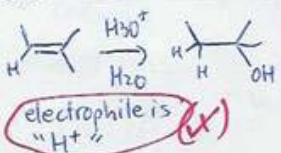 H30⁺
H H
H2O H OH
electrophile is
"H⁺"